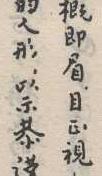 概即眉目正視
的人形，以示恭謹